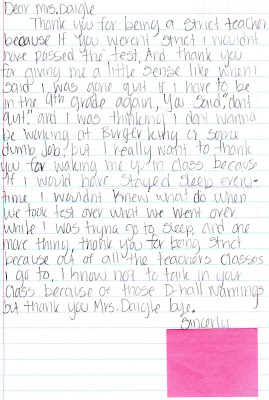 Dear Mrs. Daigle
Thank you for being a strict teacher
because if you werent strict i wouldnt
have passed the test, And thank you
for giving me a little sense like when i
said i was gone quit if i have to be
in the 9th grade again, You said, "dont
quit," and i was thinking i dont wanna
be working at Burger king or some
dumb Job, but I really want to thank
you for waking me up in class because
if i would have stayed sleep every-
time i wouldnt knew what do when
we took test over what we went over
while i was tryna go to sleep, and one
more thing, thank you for being strict
because out of all the teachers classes
i go to, I know not to talk in your
class because of those D-hall warnings
but thank you Mrs. Daigle bye.
Sincerly